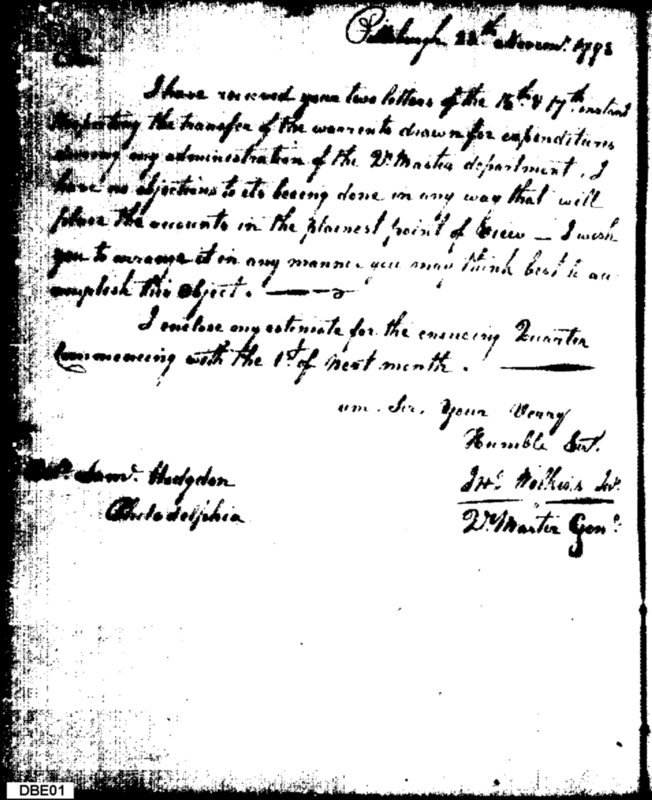 Pittsburgh 22th Novemr. 1793
I have received your two letters of the 15th & 17th instant
respecting the transfer of the warrents drawn for expenditures
during my administration of the Qr. Master department. I
have no objections to its being done in any way that will
place the accounts in the plainest point of view — I wish
you to arrange it in any manner you may think best to ac
complish this object. —
I enclose my estimate for the ensueing Quarter
Commencing with the 1st. of next month. —
am. Sir. Your Verry
Humble Sert.
Saml. Hodgdon
Philadelphia
Qr. Master Genl.
DBE01